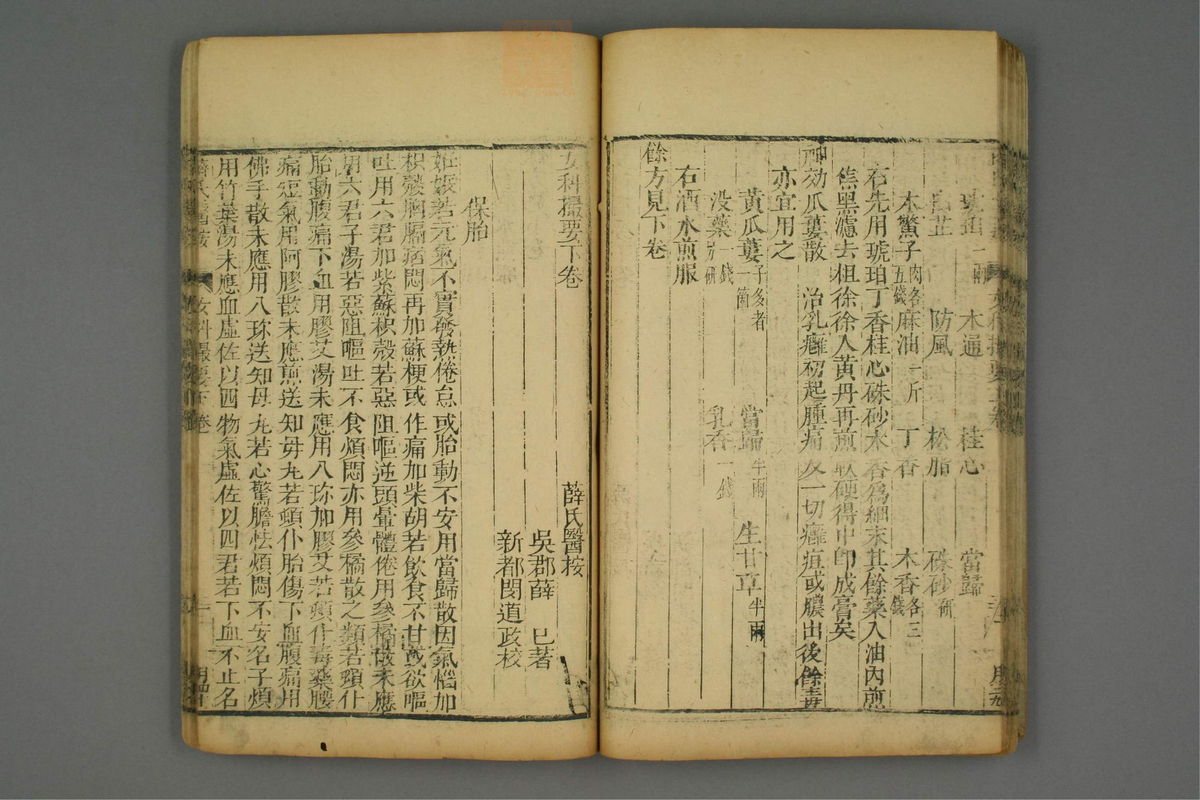 木通 桂心 當歸
白芷 防風 松脂 硃砂研
木鱉子肉各五錢 麻油一斤 丁香 木香各三錢
右先用琥珀丁香桂心硃砂木香為細末其餘藥入油內煎
焦黑濾去柤徐徐入黃丹再煎軟硬得中即成膏矣
神効瓜蔞散 治乳癰初起腫痛及一切癰疽或膿出後餘毒
亦宜用之
黃瓜蔞子多者一箇 當歸半兩 生甘草半兩
没藥一錢另研 乳香一錢
右酒水煎服
餘方見下卷
女科撮要下卷 薛氏醫按
吳郡薛 已著
新都閔道政校
保胎
妊娠若元氣不實發熱倦怠或胎動不安用當歸散因氣惱加
枳殼胸膈痞悶再加蘇梗或作痛加柴胡若飲食不甘或欲嘔
吐用六君加紫蘇枳殼若惡阻嘔逆頭暈體倦用參橘散未應
用六君子湯若惡阻嘔吐不食煩悶亦用參橘散之類若頓仆
胎動腹痛下血用膠艾湯未應用八珍加膠艾若頓仆毒藥腰
痛短氣用阿膠散未應煎送知母丸若頓仆胎傷下血腹痛用
佛手散未應用八珍送知母丸若心驚膽怯煩悶不安名子煩
用竹葉湯未應血虛佐以四物氣虛佐以四君若下血不止名
薛氏醫按 女科撮要下卷